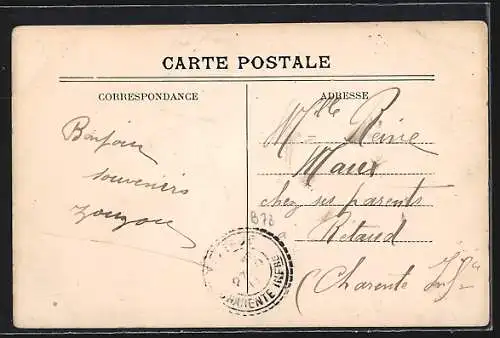 CARTE POSTALE
CORRESPONDANCE
ADRESSE
Bonjour
souvenirs
Zouzou
Mlle Reine
Maux
chez ses parents
à Rétaud
(Charente Infre
B78
CHARENTE INFRE